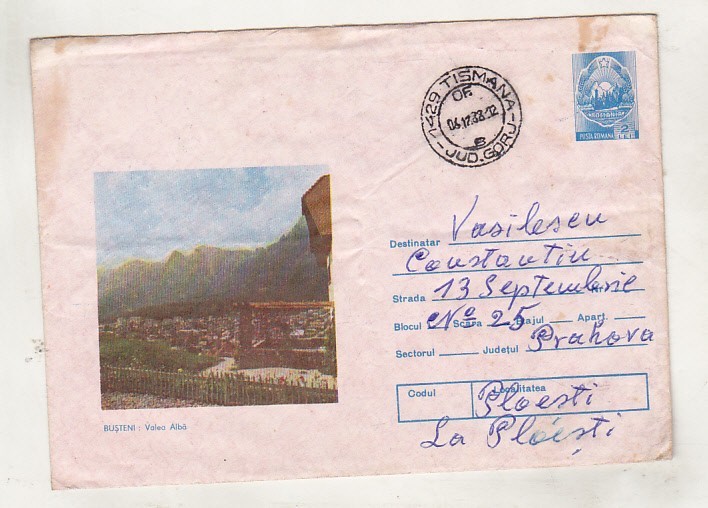 1429 TISMANA
OF.
06.12.88-12
B
-JUD. GORJ-
ROMANIA
POSTA ROMANA 2 LEI
Destinatar Vasilescu
Constantin
Strada 13 Septembrie Nr.
Blocul No Scara 25 Etajul Apart.
Sectorul Județul Prahova
Codul Localitatea
Ploesti
La Ploești
BUȘTENI : Valea Albă